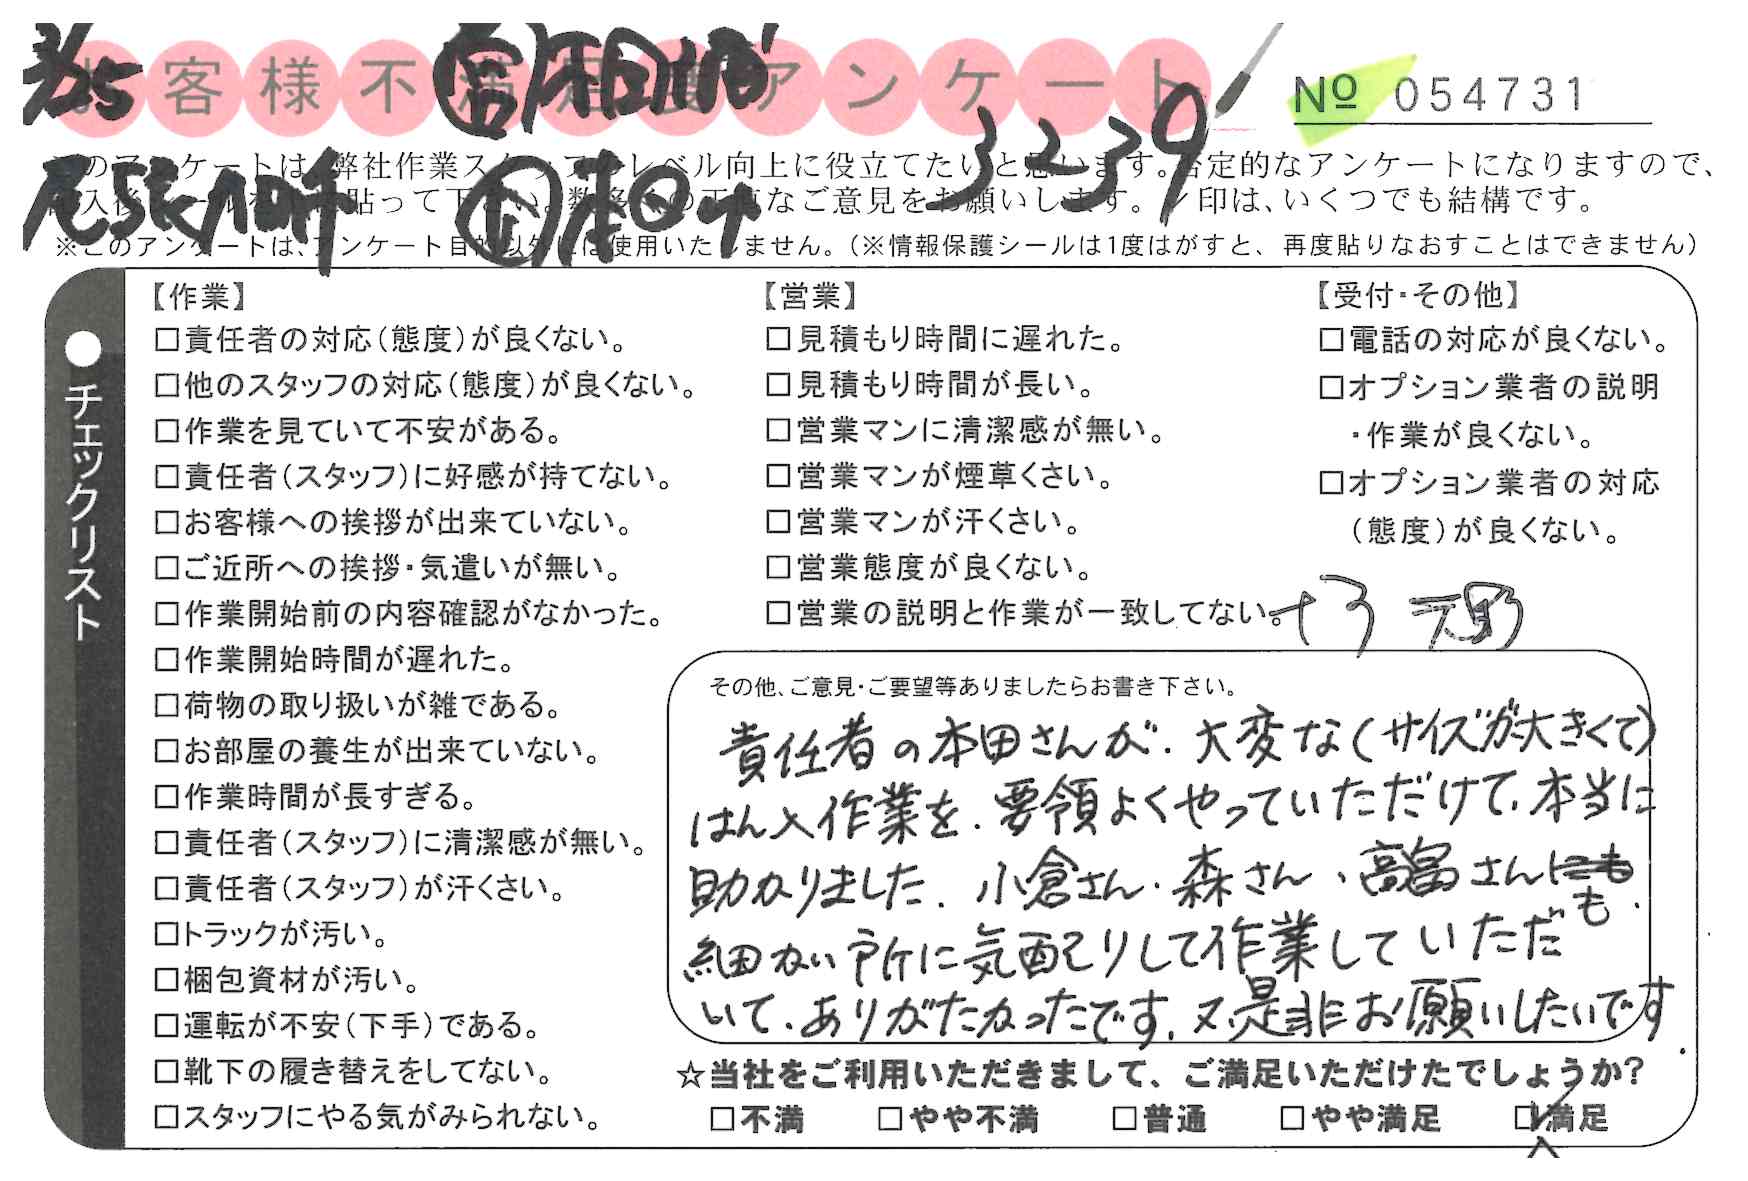 3/25
お客様不満足度アンケート
№ 054731
3239
このアンケートは、弊社作業スタッフのレベル向上に役立てたいと思います。否定的なアンケートになりますので、
貼って下さい。数多くの正直なご意見をお願いします。レ印は、いくつでも結構です。
※このアンケートは、アンケート目的以外には使用いたしません。(※情報保護シールは1度はがすと、再度貼りなおすことはできません)
●チェックリスト
【作業】
□責任者の対応(態度)が良くない。
□他のスタッフの対応(態度)が良くない。
□作業を見ていて不安がある。
□責任者(スタッフ)に好感が持てない。
□お客様への挨拶が出来ていない。
□ご近所への挨拶・気遣いが無い。
□作業開始前の内容確認がなかった。
□作業開始時間が遅れた。
□荷物の取り扱いが雑である。
□お部屋の養生が出来ていない。
□作業時間が長すぎる。
□責任者(スタッフ)に清潔感が無い。
□責任者(スタッフ)が汗くさい。
□トラックが汚い。
□梱包資材が汚い。
□運転が不安(下手)である。
□靴下の履き替えをしてない。
□スタッフにやる気がみられない。
【営業】
□見積もり時間に遅れた。
□見積もり時間が長い。
□営業マンに清潔感が無い。
□営業マンが煙草くさい。
□営業マンが汗くさい。
□営業態度が良くない。
□営業の説明と作業が一致してない。
【受付・その他】
□電話の対応が良くない。
□オプション業者の説明
・作業が良くない。
□オプション業者の対応
(態度)が良くない。
+3
その他、ご意見・ご要望等ありましたらお書き下さい。
責任者の本田さんが、大変な(サイズが大きくて)
はん入作業を、要領よくやっていただけて、本当に
助かりました。小倉さん、森さん、高畠さんにも
も、
細かい所に気配りして作業していただ
いて、ありがたかったです。又、是非お願いしたいです。
☆当社をご利用いただきまして、ご満足いただけたでしょうか?
□不満 □やや不満 □普通 □やや満足 ☑満足